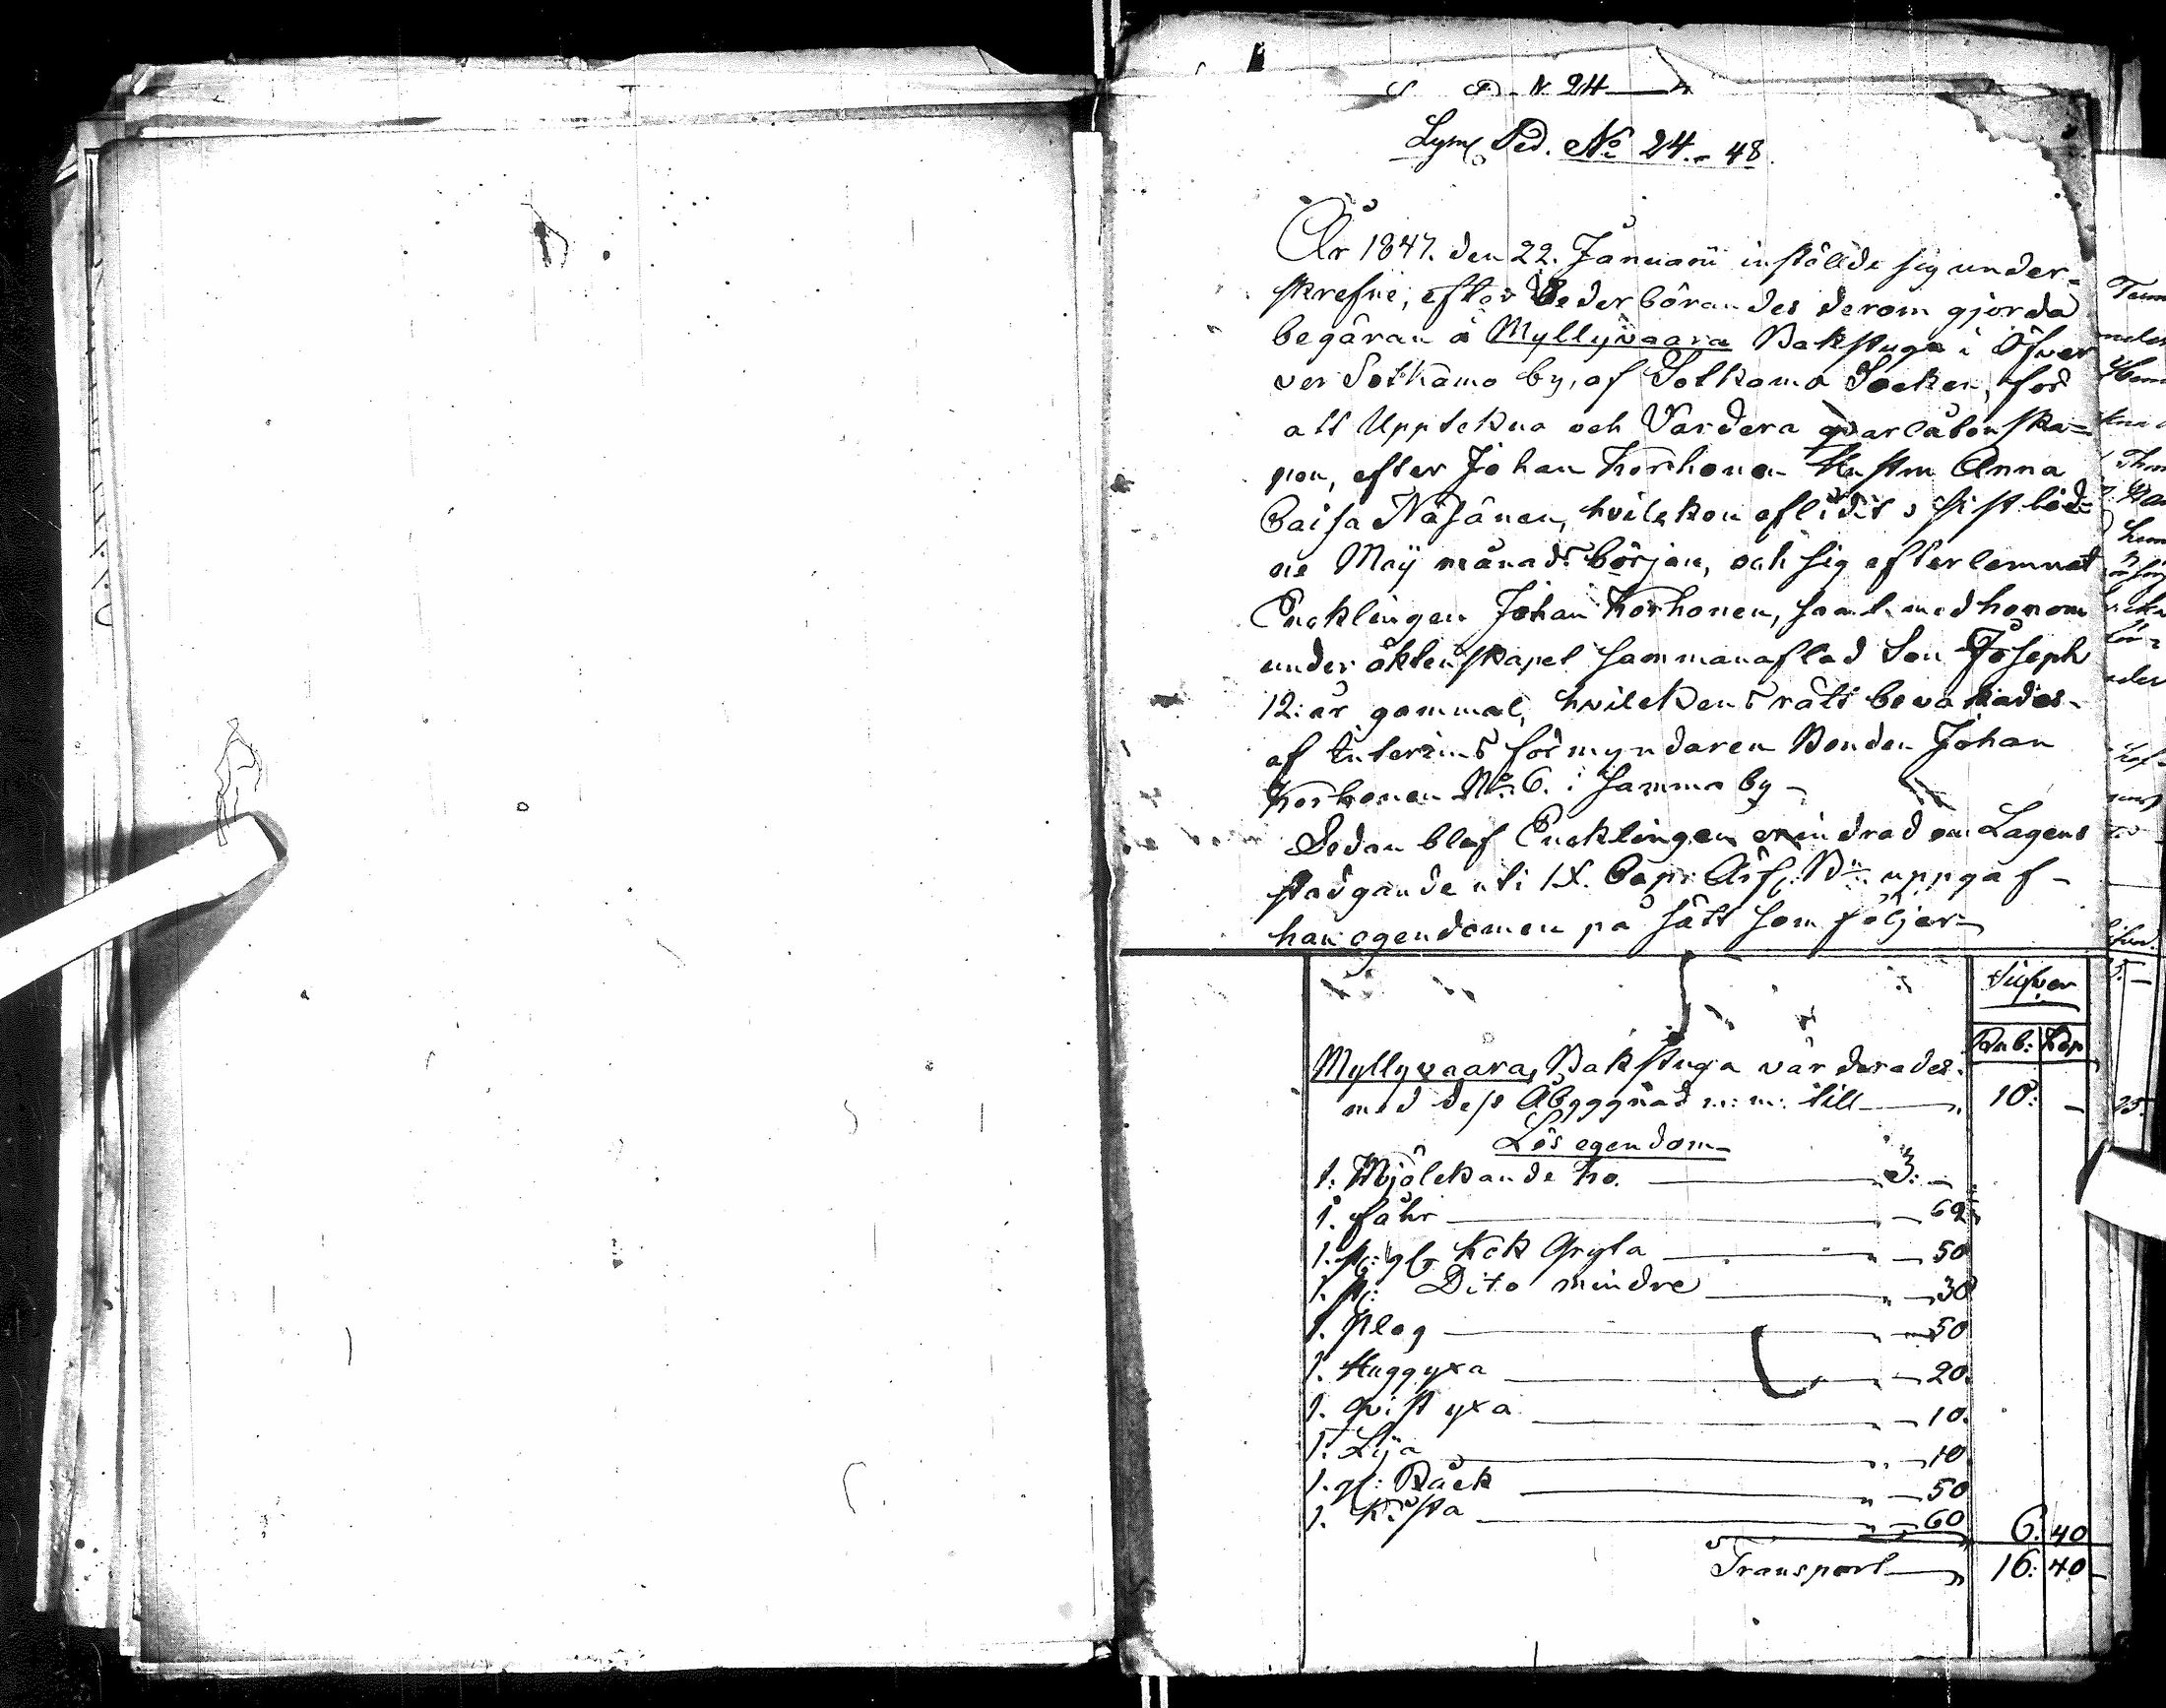 N 24
Ped. No 24. - 48.
År 1847. den 22. Januarii instälde sig under-
skrefne, efter Vederbörandes derom gjorda
begäran å Myllyvaara Bakstuga i Öfver
ver Sotkamo by, af Sotkamo Socken, för
att Upptekna och Värdera qvarlåtenska-
pen, efter Johan Korhonen Hustru Anna
Caisa Näsänen, hvilken aflidit i sist led-
ne Maij månads början, och sig efterlemnat
Encklingen Johan Korhonen, samt med honom
under äktenskapet sammanaflad Son Joseph
12: år gammal, hvilckens rätt bevakades
af Interims förmyndaren Bonden Johan
Korhonen No 6. i samma by -
Sedan blef Encklingen erindrad om Lagens
stadgande uti IX. Cap: Ärf: B: uppgaf
han egendomen på sätt som följer
Silfver
Rub: Kop
Myllyvaara, Bakstuga värderades
med dess Åbyggnad m: m: till 10: -
Lös egendom
1. Mjölckande ko. 3: -
1. fåhr 60
1. st: gl: Kok Gryta 50
1. st: Dito mindre 30
1. Plog 50
1. Huggyxa 20.
1. Qvist yxa 10.
1. Lija 10
1. gl: Bäck 50
1. Kista 60 6. 40
Transport 16: 40